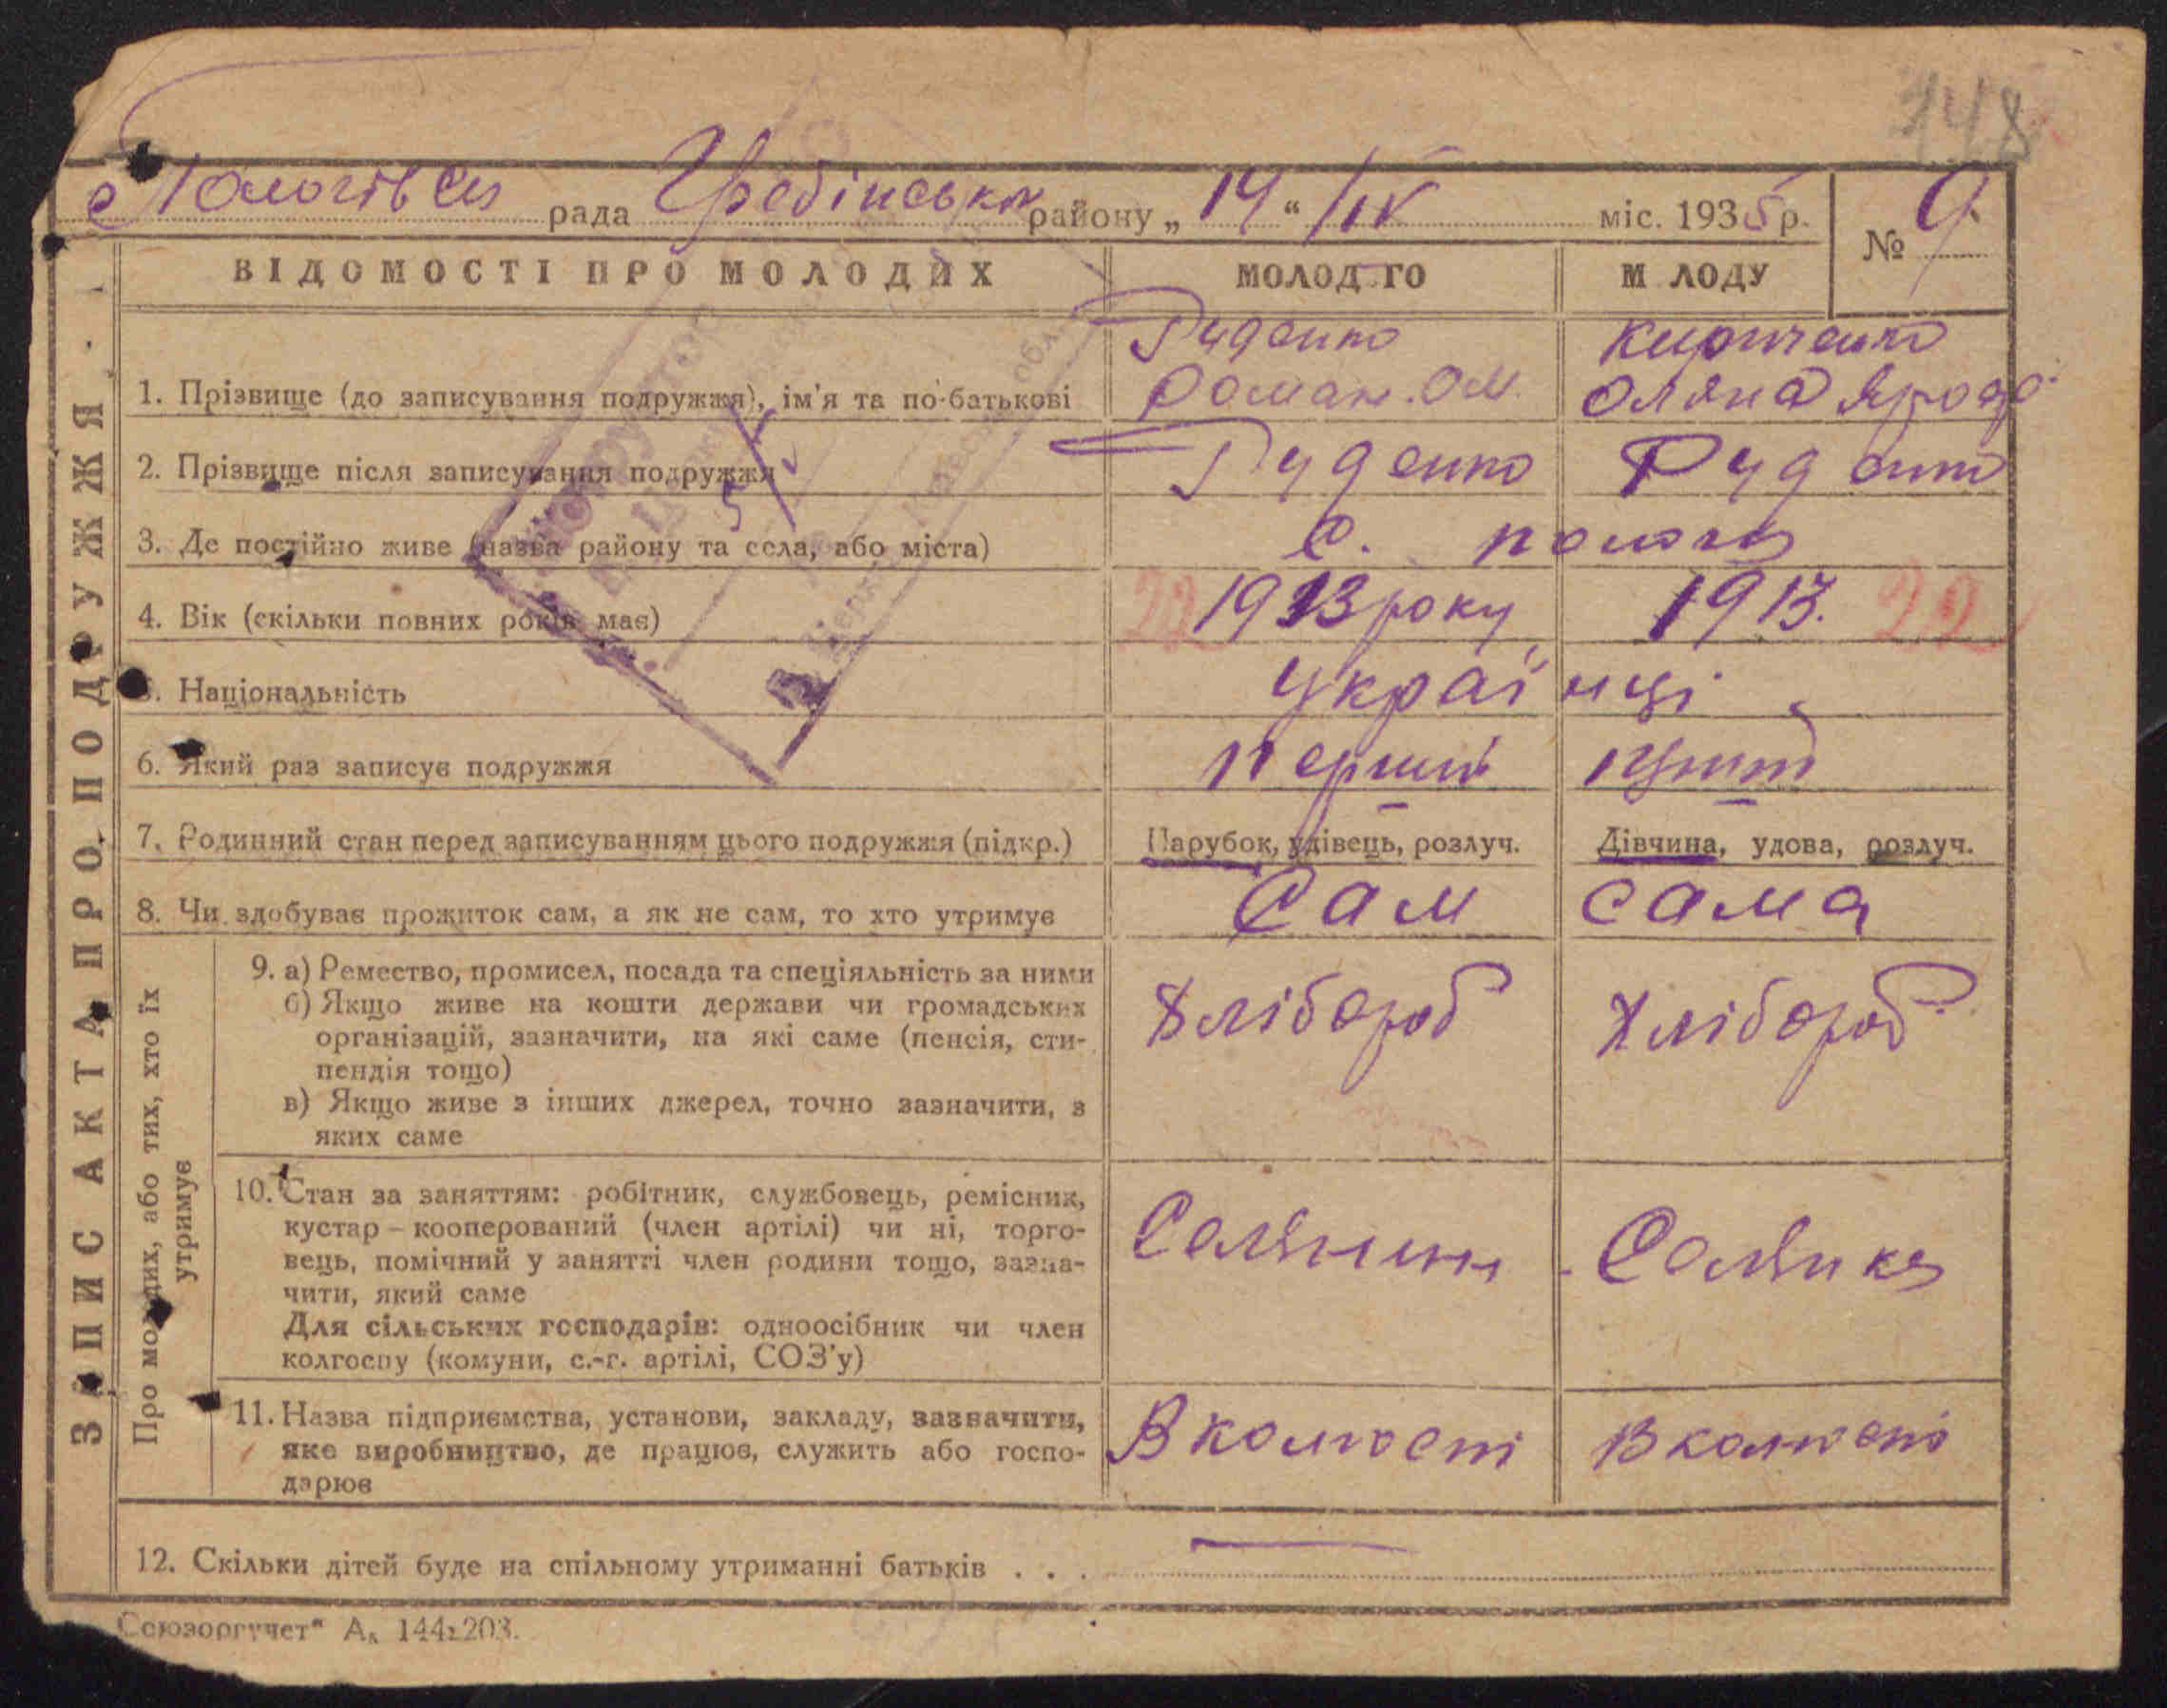 148
Пологівска рада Гребінсько району „ 14 “ /IV міс. 1935 р. № 9
ВІДОМОСТІ ПРО МОЛОДИХ МОЛОД ГО М ЛОДУ
Руденко Кириченко
1. Прізвище (до записування подружжя), ім'я та по-батькові Роман. Ом. Оляна
2. Прізвище після записування подружжя Руденко Руденко
3. Де постійно живе (назва району та села, або міста) с. пологи
4. Вік (скільки повних років має) 22 1913 року 1913. 22
5. Національність українці
6. Який раз записує подружжя перший
7. Родинний стан перед записуванням цього подружжя (підкр.) Парубок, удівець, розлуч. Дівчина, удова, розлуч.
8. Чи здобуває прожиток сам, а як не сам, то хто утримує Сам сама
9. а) Ремество, промисел, посада та спеціяльність за ними
б) Якщо живе на кошти держави чи громадських Хлібороб Хлібороб
організацій, зазначити, на які саме (пенсія, сти-
пендія тощо)
в) Якщо живе з інших джерел, точно зазначити, з
яких саме
10. Стан за заняттям: робітник, службовець, ремісник,
кустар – кооперований (член артілі) чи ні, торго-
вець, помічний у занятті член родини тощо, зазна- Селянин Селянка
чити, який саме
Для сільських господарів: одноосібник чи член
колгоспу (комуни, с.-г. артілі, СОЗ'у)
11. Назва підприємства, установи, закладу, зазначити,
яке виробництво, де працює, служить або госпо- В колгоспі В колгоспі
дарює
12. Скільки дітей буде на спільному утриманні батьків . . . —
ЗАПИС АКТА ПРО ПОДРУЖЖЯ
Про молодих, або тих, хто їх
утримує
Союзоргучет"